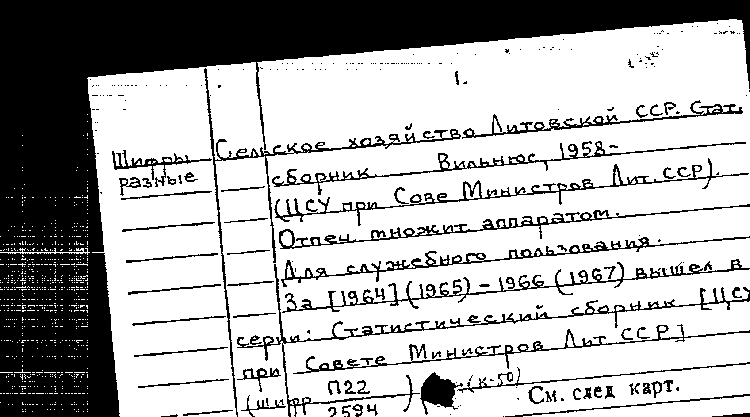 1.
Шифры разные
Сельское хозяйство Литовской ССР. Стат.
сборник Вильнюс, 1958-
(ЦСУ при Сове Министров Лит. ССР).
Отпеч. множит. аппаратом.
Для служебного пользования.
За [1964] (1965) - 1966 (1967) вышел в
серии: Статистический сборник [ЦСУ
при Совете Министров Лит ССР]
(шифр П22/2594) (к-50)
См. след карт.